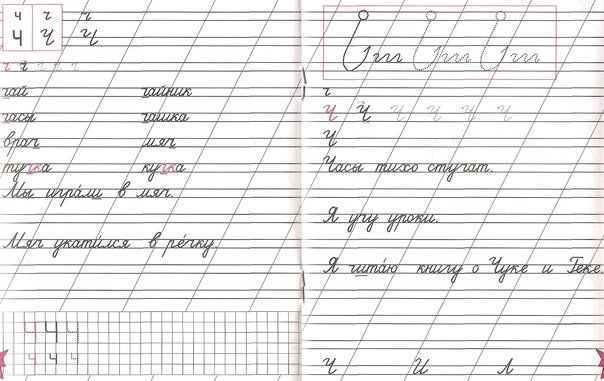 ч ч ч
Ч Ч Ч
ч ч ч ч ч ч
чай чайник
часы чашка
врач мяч
тучка кучка
Мы игра́ли в мяч.
Мяч укати́лся в ре́чку.
Ч Ч Ч
ч ч ч
ч
Ч Ч Ч Ч Ч Ч
Ч
Часы тихо стучат.
Я учу уроки.
Я чита́ю книгу о Чуке и Геке.
Ч И Л